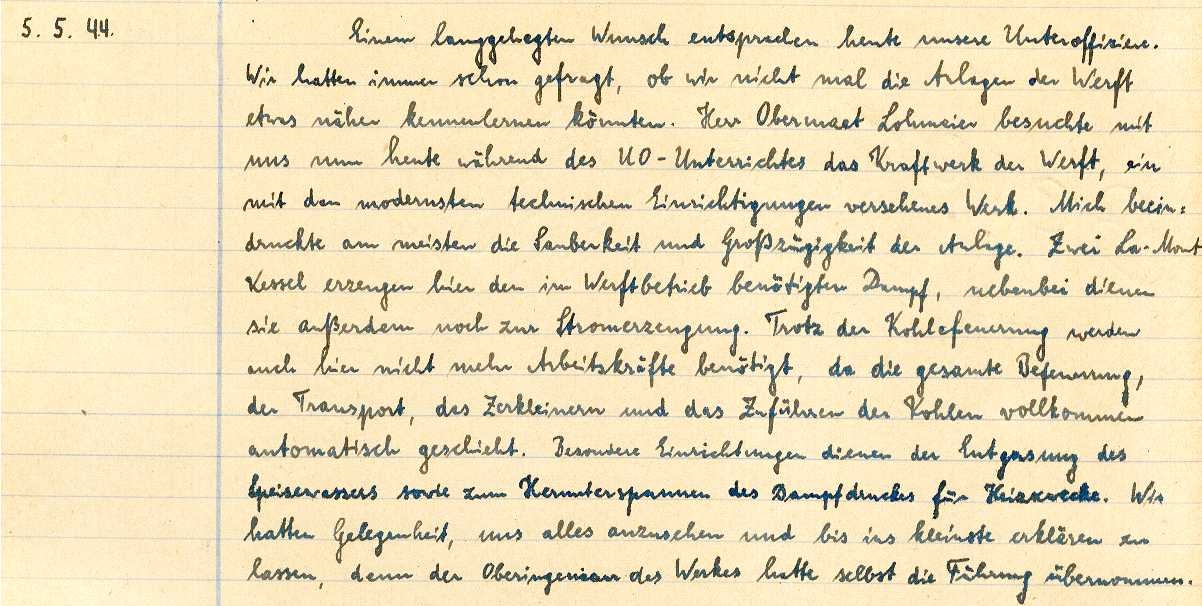 5. 5. 44.
Einem langgehegten Wunsch entsprachen heute unsere Unteroffiziere.
Wir hatten immer schon gefragt, ob wir nicht mal die Anlagen der Werft
etwas näher kennenlernen könnten. Herr Obermaat Lohmeier besuchte mit
uns nun heute während des UO-Unterrichtes das Kraftwerk der Werft, ein
mit den modernsten technischen Einrichtigungen versehenes Werk. Mich beein=
druckte am meisten die Sauberkeit und Großzügigkeit der Anlage. Zwei La-Mont
Kessel erzeugen hier den im Werftbetrieb benötigten Dampf, nebenbei dienen
sie außerdem noch zur Stromerzeugung. Trotz der Kohlefeuerung werden
auch hier nicht mehr Arbeitskräfte benötigt, da die gesamte Befeuerung,
der Transport, das Zerkleinern und das Zuführen der Kohlen vollkommen
automatisch geschieht. Besondere Einrichtungen dienen der Entgasung des
Speisewassers sowie zum Herunterspannen des Dampfdruckes für Heizzwecke. Wir
hatten Gelegenheit, uns alles anzusehen und bis ins kleinste erklären zu
lassen, denn der Oberingenieur des Werkes hatte selbst die Führung übernommen.